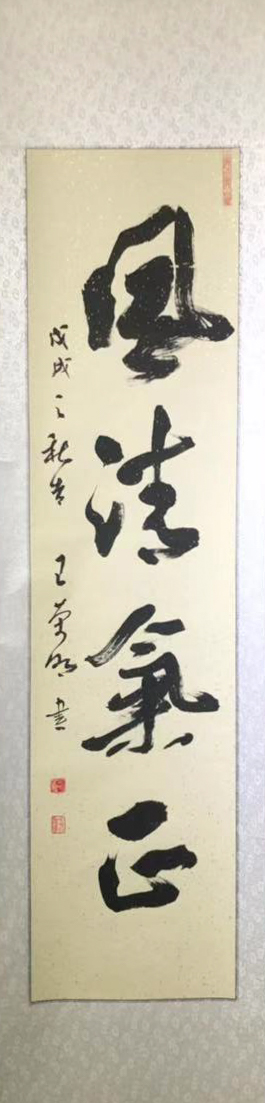 風清氣正
戊戌之秋吉 王榮明書